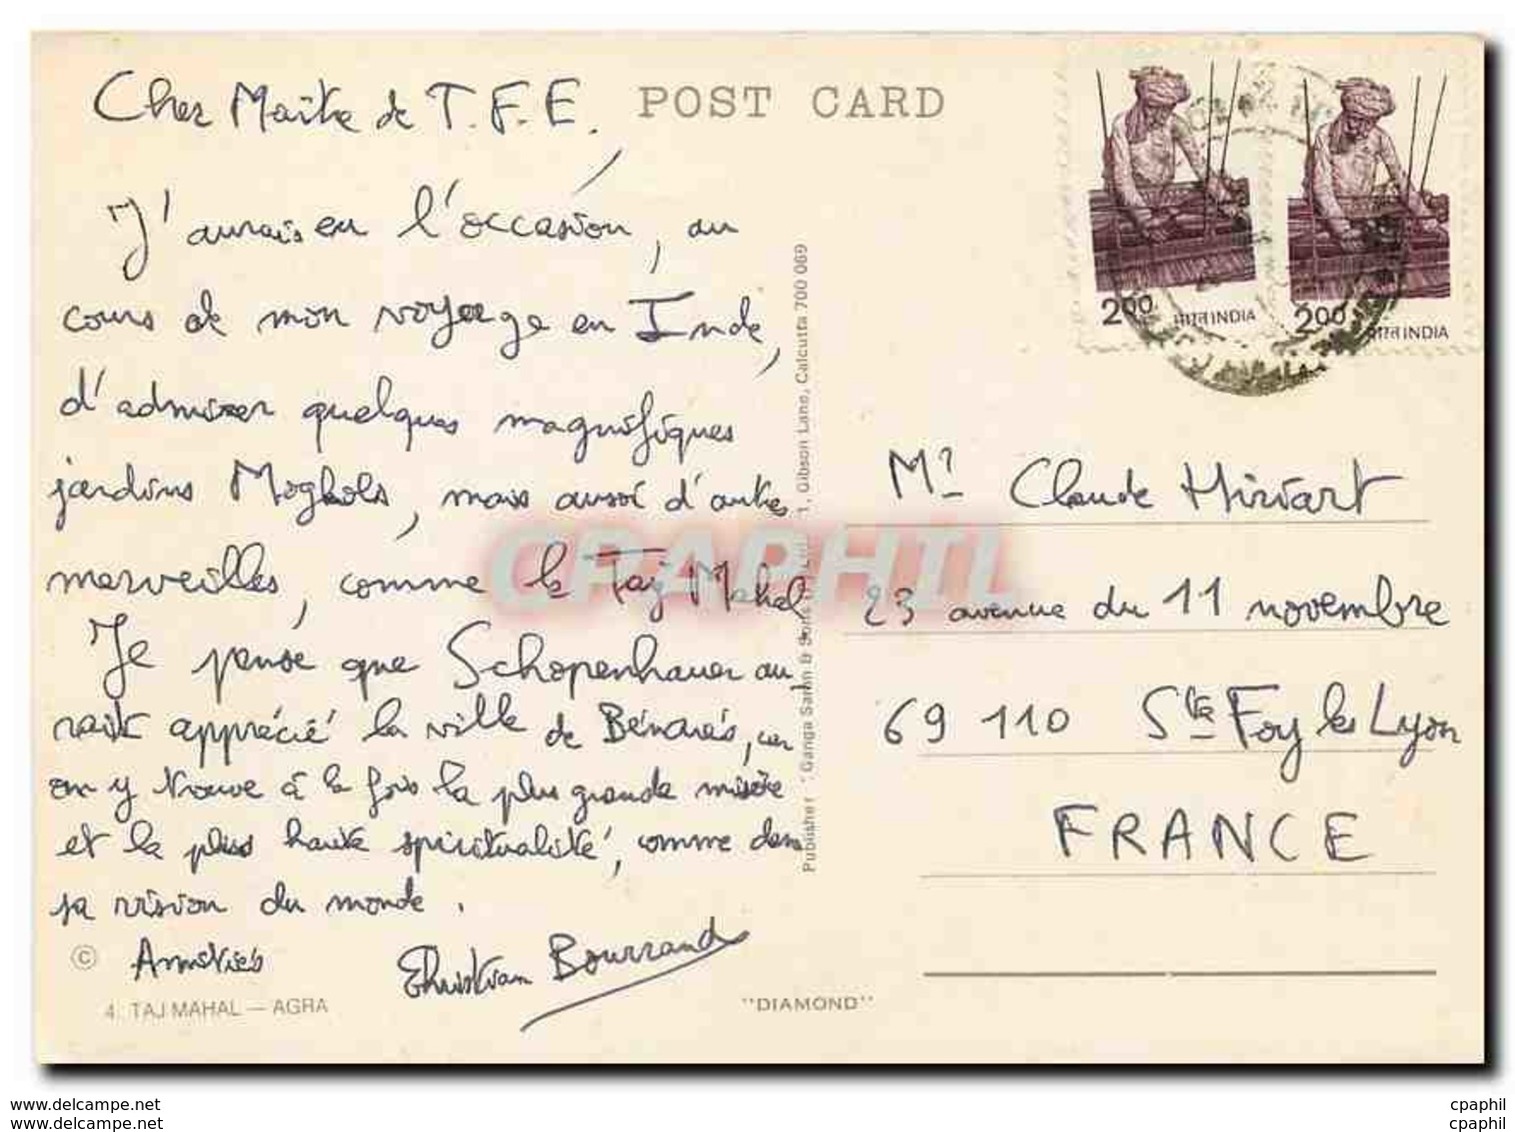 POST CARD
Cher Maitre de T.F.E.,
J'aurais eu l'occasion, au
cours de mon voyage en Inde,
d'admirer quelques magnifiques
jardins Moghols, mais aussi d'autres
merveilles, comme le Taj Mahal.
Je pense que Schopenhauer au-
rait apprécié la ville de Bénarès, car
on y trouve à la fois la plus grande misère
et la plus haute spiritualité, comme dans
sa vision du monde.
Amitiés
Christian Bourrand
©
4. TAJ MAHAL — AGRA
"DIAMOND"
Publisher "Ganga Saran & Sons 1, Gibson Lane, Calcutta 700 069
2.00 भारत INDIA
2.00 भारत INDIA
Mr Claude Hiriart
23 avenue du 11 novembre
69 110 Ste Foy les Lyon
FRANCE
CPAPHIL
www.delcampe.net
www.delcampe.net
cpaphil
cpaphil